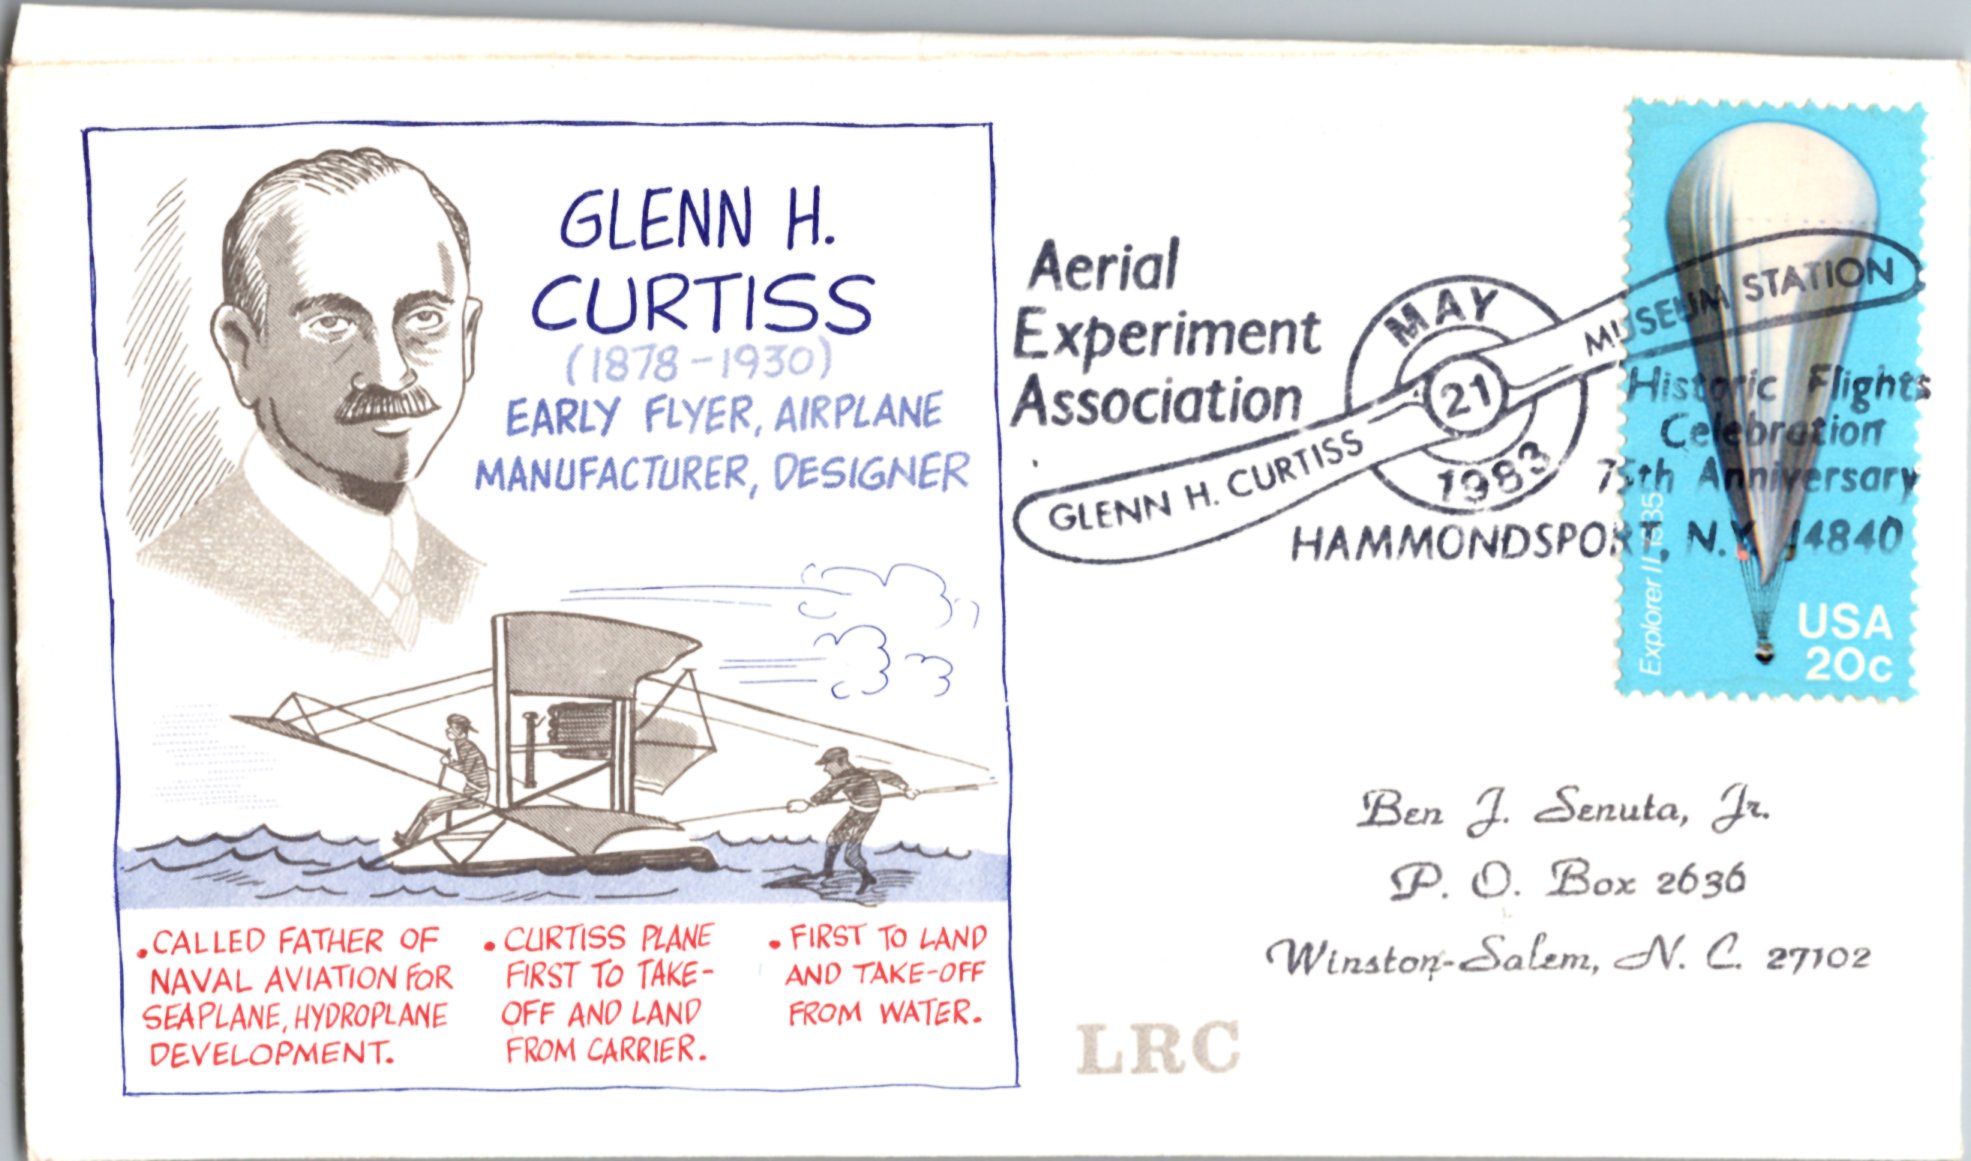 GLENN H.
CURTISS
(1878-1930)
EARLY FLYER, AIRPLANE
MANUFACTURER, DESIGNER
• CALLED FATHER OF
NAVAL AVIATION FOR
SEAPLANE, HYDROPLANE
DEVELOPMENT.
• CURTISS PLANE
FIRST TO TAKE-
OFF AND LAND
FROM CARRIER.
• FIRST TO LAND
AND TAKE-OFF
FROM WATER.
Aerial
Experiment
Association
MAY
21
1983
GLENN H. CURTISS
MUSEUM STATION
Historic Flights
Celebration
75th Anniversary
HAMMONDSPORT, N.Y. 14840
Explorer II 1935
USA
20c
Ben J. Senuta, Jr.
P. O. Box 2636
Winston-Salem, N. C. 27102
LRC